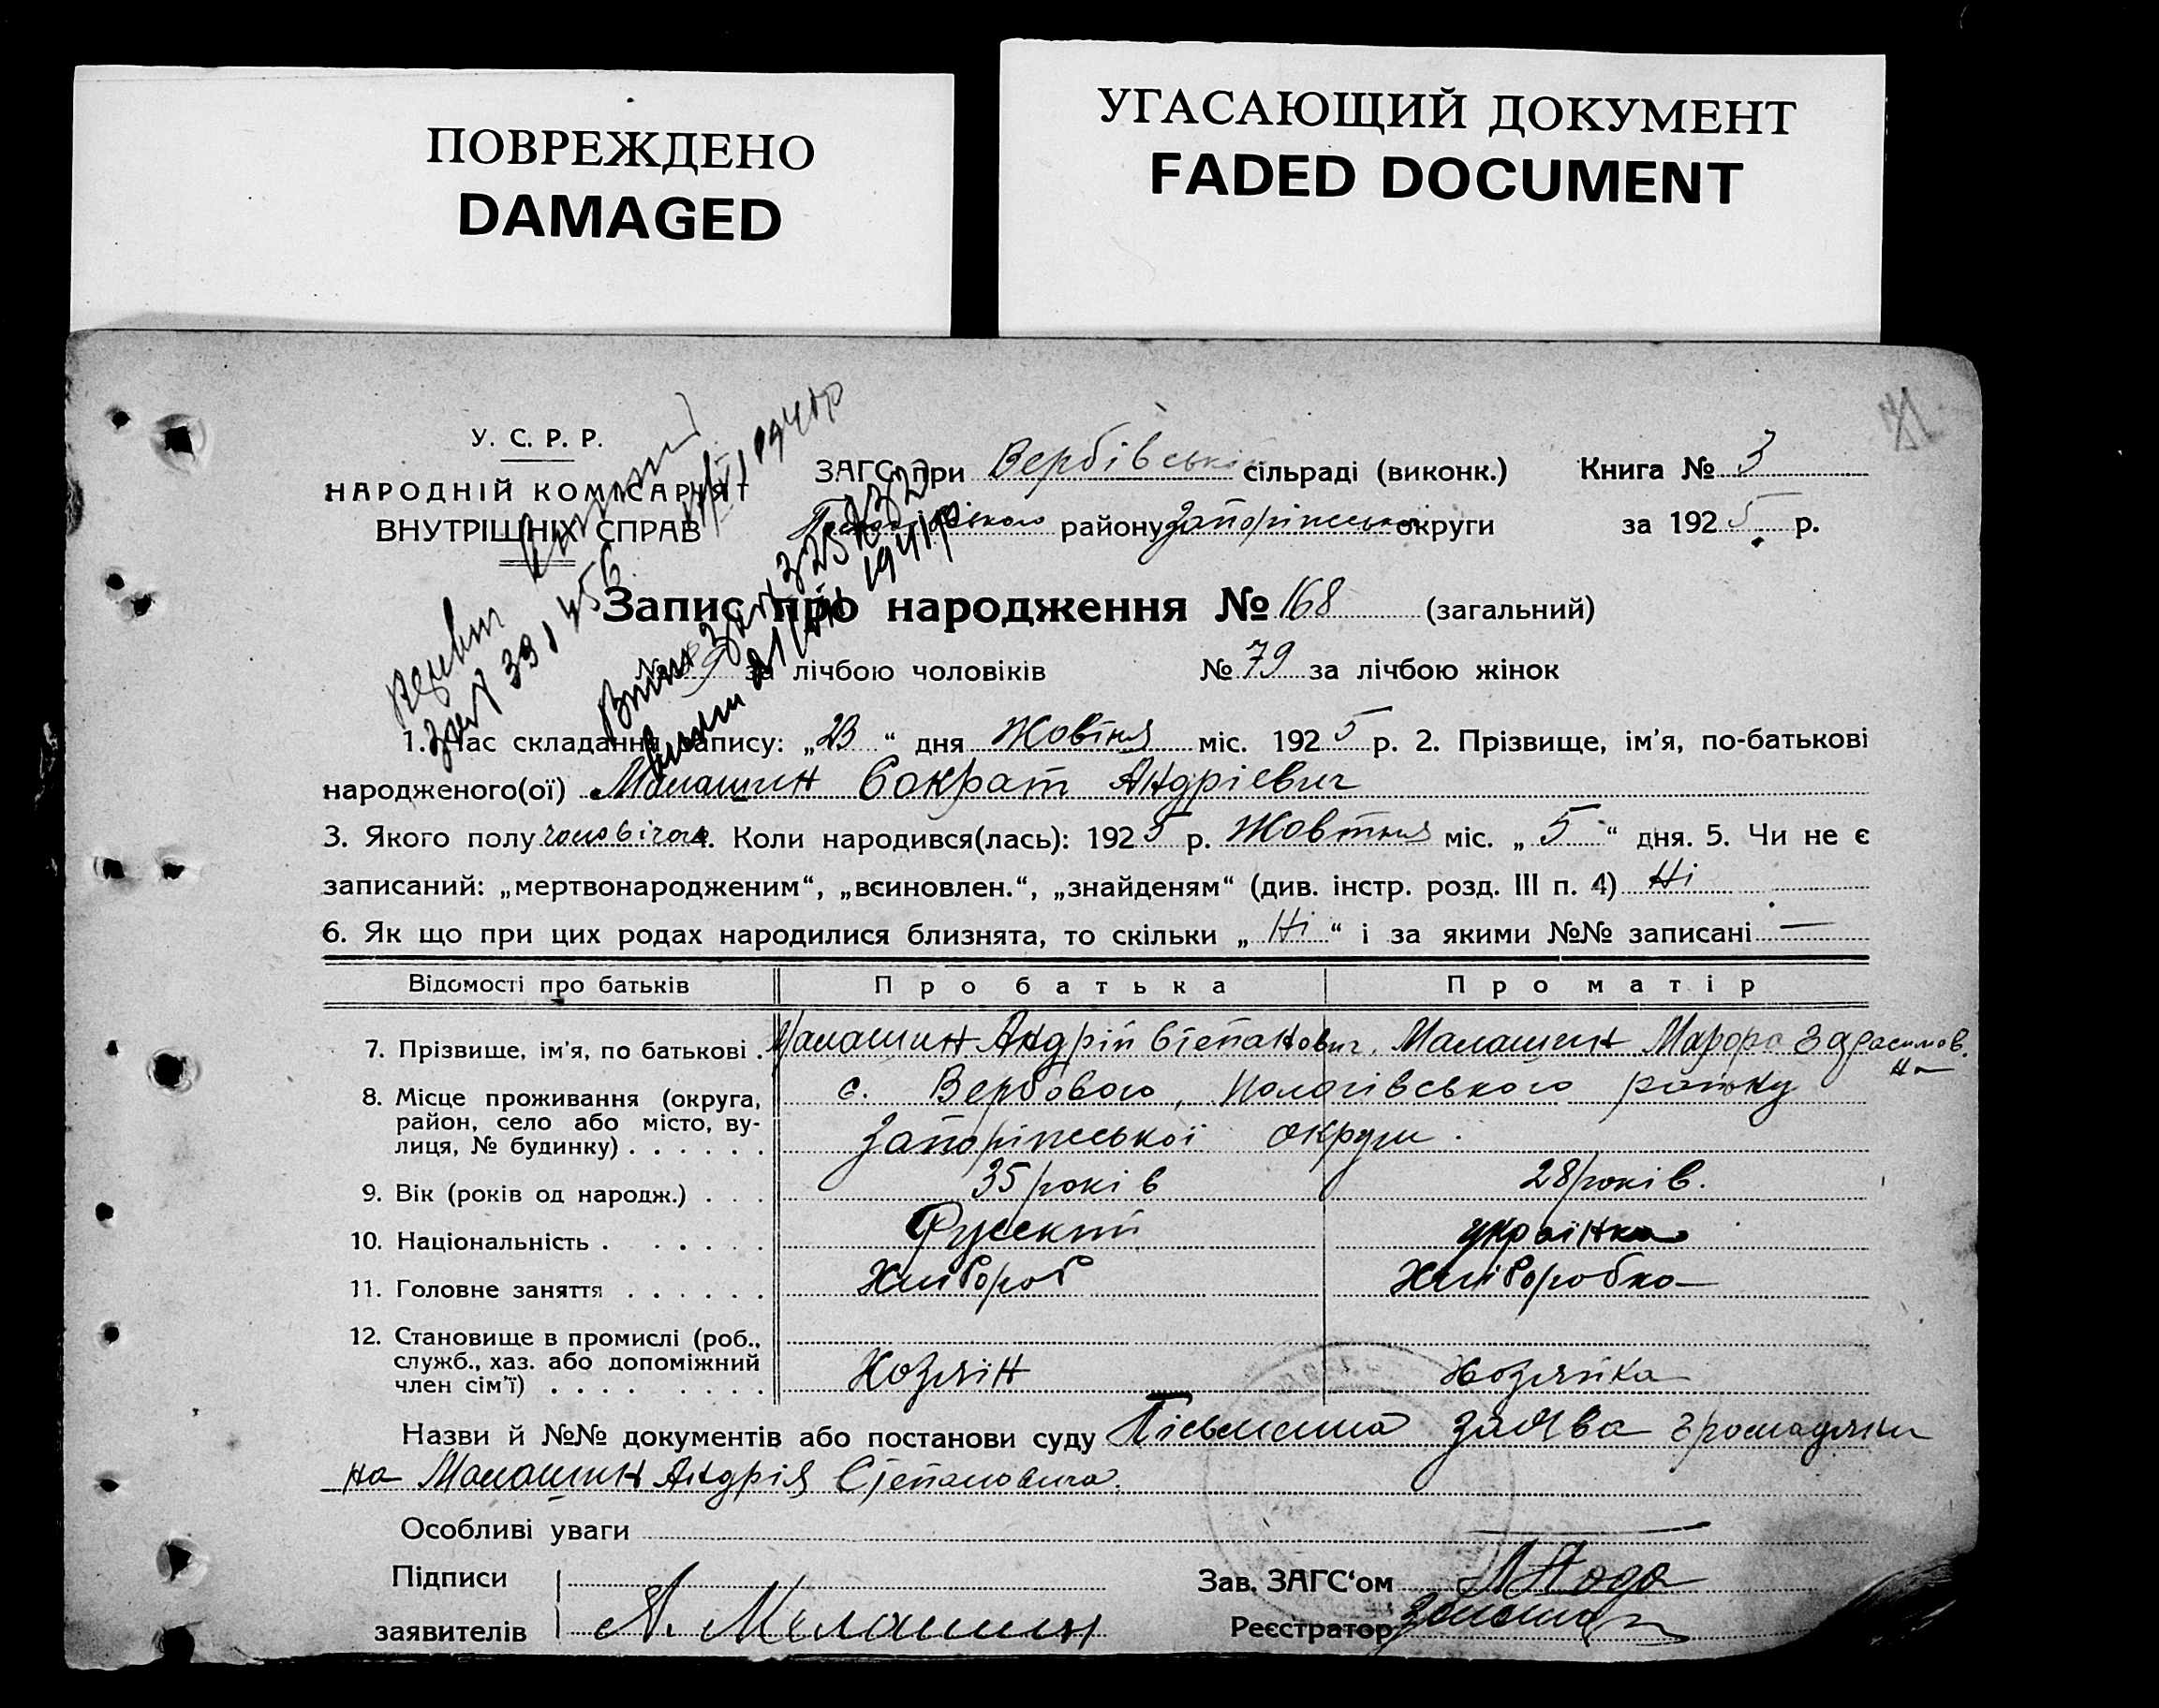 ПОВРЕЖДЕНО
DAMAGED
УГАСАЮЩИЙ ДОКУМЕНТ
FADED DOCUMENT
У. С. Р. Р.
НАРОДНІЙ КОМІСАРІЯТ
ВНУТРІШНІХ СПРАВ
ЗАГС при Вербівській сільраді (виконк.) Книга № 3
району Запоріжської округи за 1925 р.
Запис про народження № 168 (загальний)
89 за лічбою чоловіків № 79 за лічбою жінок
1. Час складання запису: „23“ дня Жовтня міс. 1925 р. 2. Прізвище, ім'я, по-батькові
народженого(ої) Малашин Сократ Андрієвич
3. Якого полу чоловічого 4. Коли народився(лась): 1925 р. Жовтня міс. „5“ дня. 5. Чи не є
записаний: „мертвонародженим“, „всиновлен.“, „знайденям“ (див. інстр. розд. III п. 4) Ні
6. Як що при цих родах народилися близнята, то скільки „Ні“ і за якими №№ записані —
Відомості про батьків Про батька Про матір
7. Прізвище, ім'я, по батькові . Малашин Андрій Степанович. Малашин
8. Місце проживання (округа, с. Вербового, Пологівського району
район, село або місто, ву-
лиця, № будинку) . . . . . . Запоріжської округи.
9. Вік (років од народж.) . . . 35 років 28 років.
10. Національність . . . . . . Русский українка
11. Головне заняття . . . . . . Хлибороб Хліборобка
12. Становище в промислі (роб.,
служб., хаз. або допоміжний
член сім'ї) . . . . . . . . Хозяїн Хозяйка
Назви й №№ документів або постанови суду Письменна заява громадяни
на Малашин Андрія Степановича.
Особливі уваги
Підписи Зав. ЗАГС'ом
заявителів А. Малашин Реєстратор